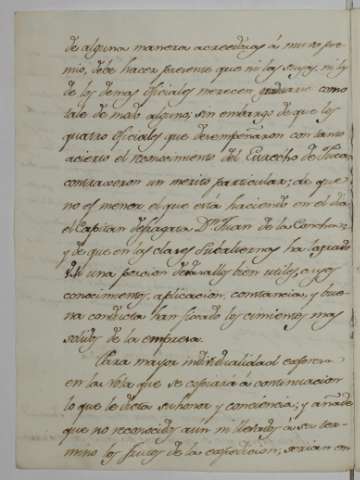 de alguna manera acreedores á nuevo pre-
mio, debe hacer presente que ni los suyos, ni los
de los demas oficiales merecen graduarse como
tales de modo alguno, sin embargo de que los
quatro oficiales que desempeñaron con tanto
acierto el reconocimiento del Estrecho de Fuca
contraxeron un merito particular; de que
no es menor el que esta haciendo en el dia
el Capitan de fragata Dn. Juan de la Concha;
y de que en las clases subalternas ha logrado
una porcion de utiles, cuyos
conocimientos, aplicacion, constancia, y bue-
na conducta han sido los cimientos mas
solidos de la empresa.
Para mayor individualidad expresa
en la nota que se copiará á continuacion
lo que le dicta su honor y conciencia; y añade
que no reconocidos aun ni llevados á su ter-
mino los frutos de la expedicion, serian en